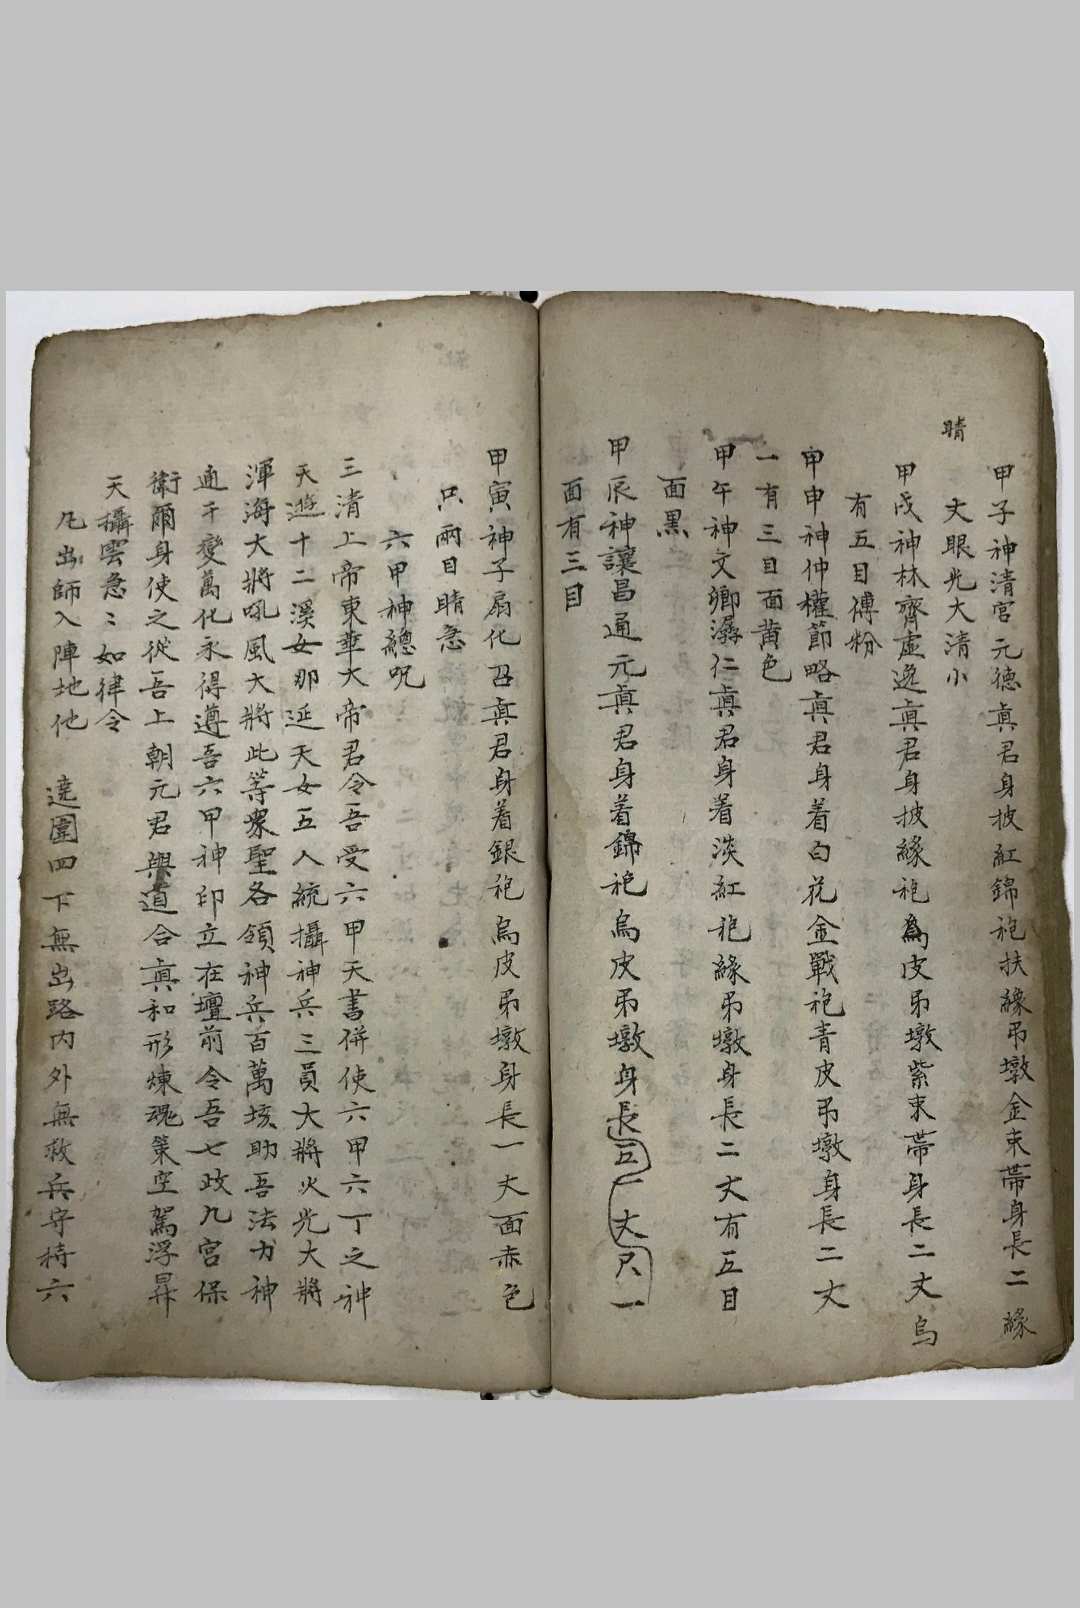 甲子神清宮元德眞君身披紅錦袍扶緣吊墩金束帶身長二 緣
丈眼光大清小
晴
甲戌神林齊虛逸眞君身披緣袍為皮吊墩紫束帶身長二丈 烏
有五目傅粉
甲申神仲權節略眞君身着白花金戰袍青皮吊墩身長二丈
一有三目面黃色
甲午神文卿潺仁眞君身着淡紅袍緣吊墩身長二丈有五目
面黑
甲辰神讓昌通元眞君身着錦袍烏皮吊墩身長五一丈尺一
面有三目
甲寅神子扇化召眞君身着銀袍烏皮吊墩身長一丈面赤色
只兩目睛急
六甲神總咒
三清上帝東華大帝君令吾受六甲天書併使六甲六丁之神
天遊十二溪女那延天女五人統攝神兵三員大將火光大將
渾海大將吼風大將此等眾聖各領神兵百萬垓助吾法力神
通千變萬化永得遵吾六甲神印立在壇前令吾七政九宮保
衛爾身使之從吾上朝元君與道合眞和形煉魂策空駕浮昇
天攝雲急〻如律令
凡出師入陣地他 遶圍四下無出路內外無救兵守持六